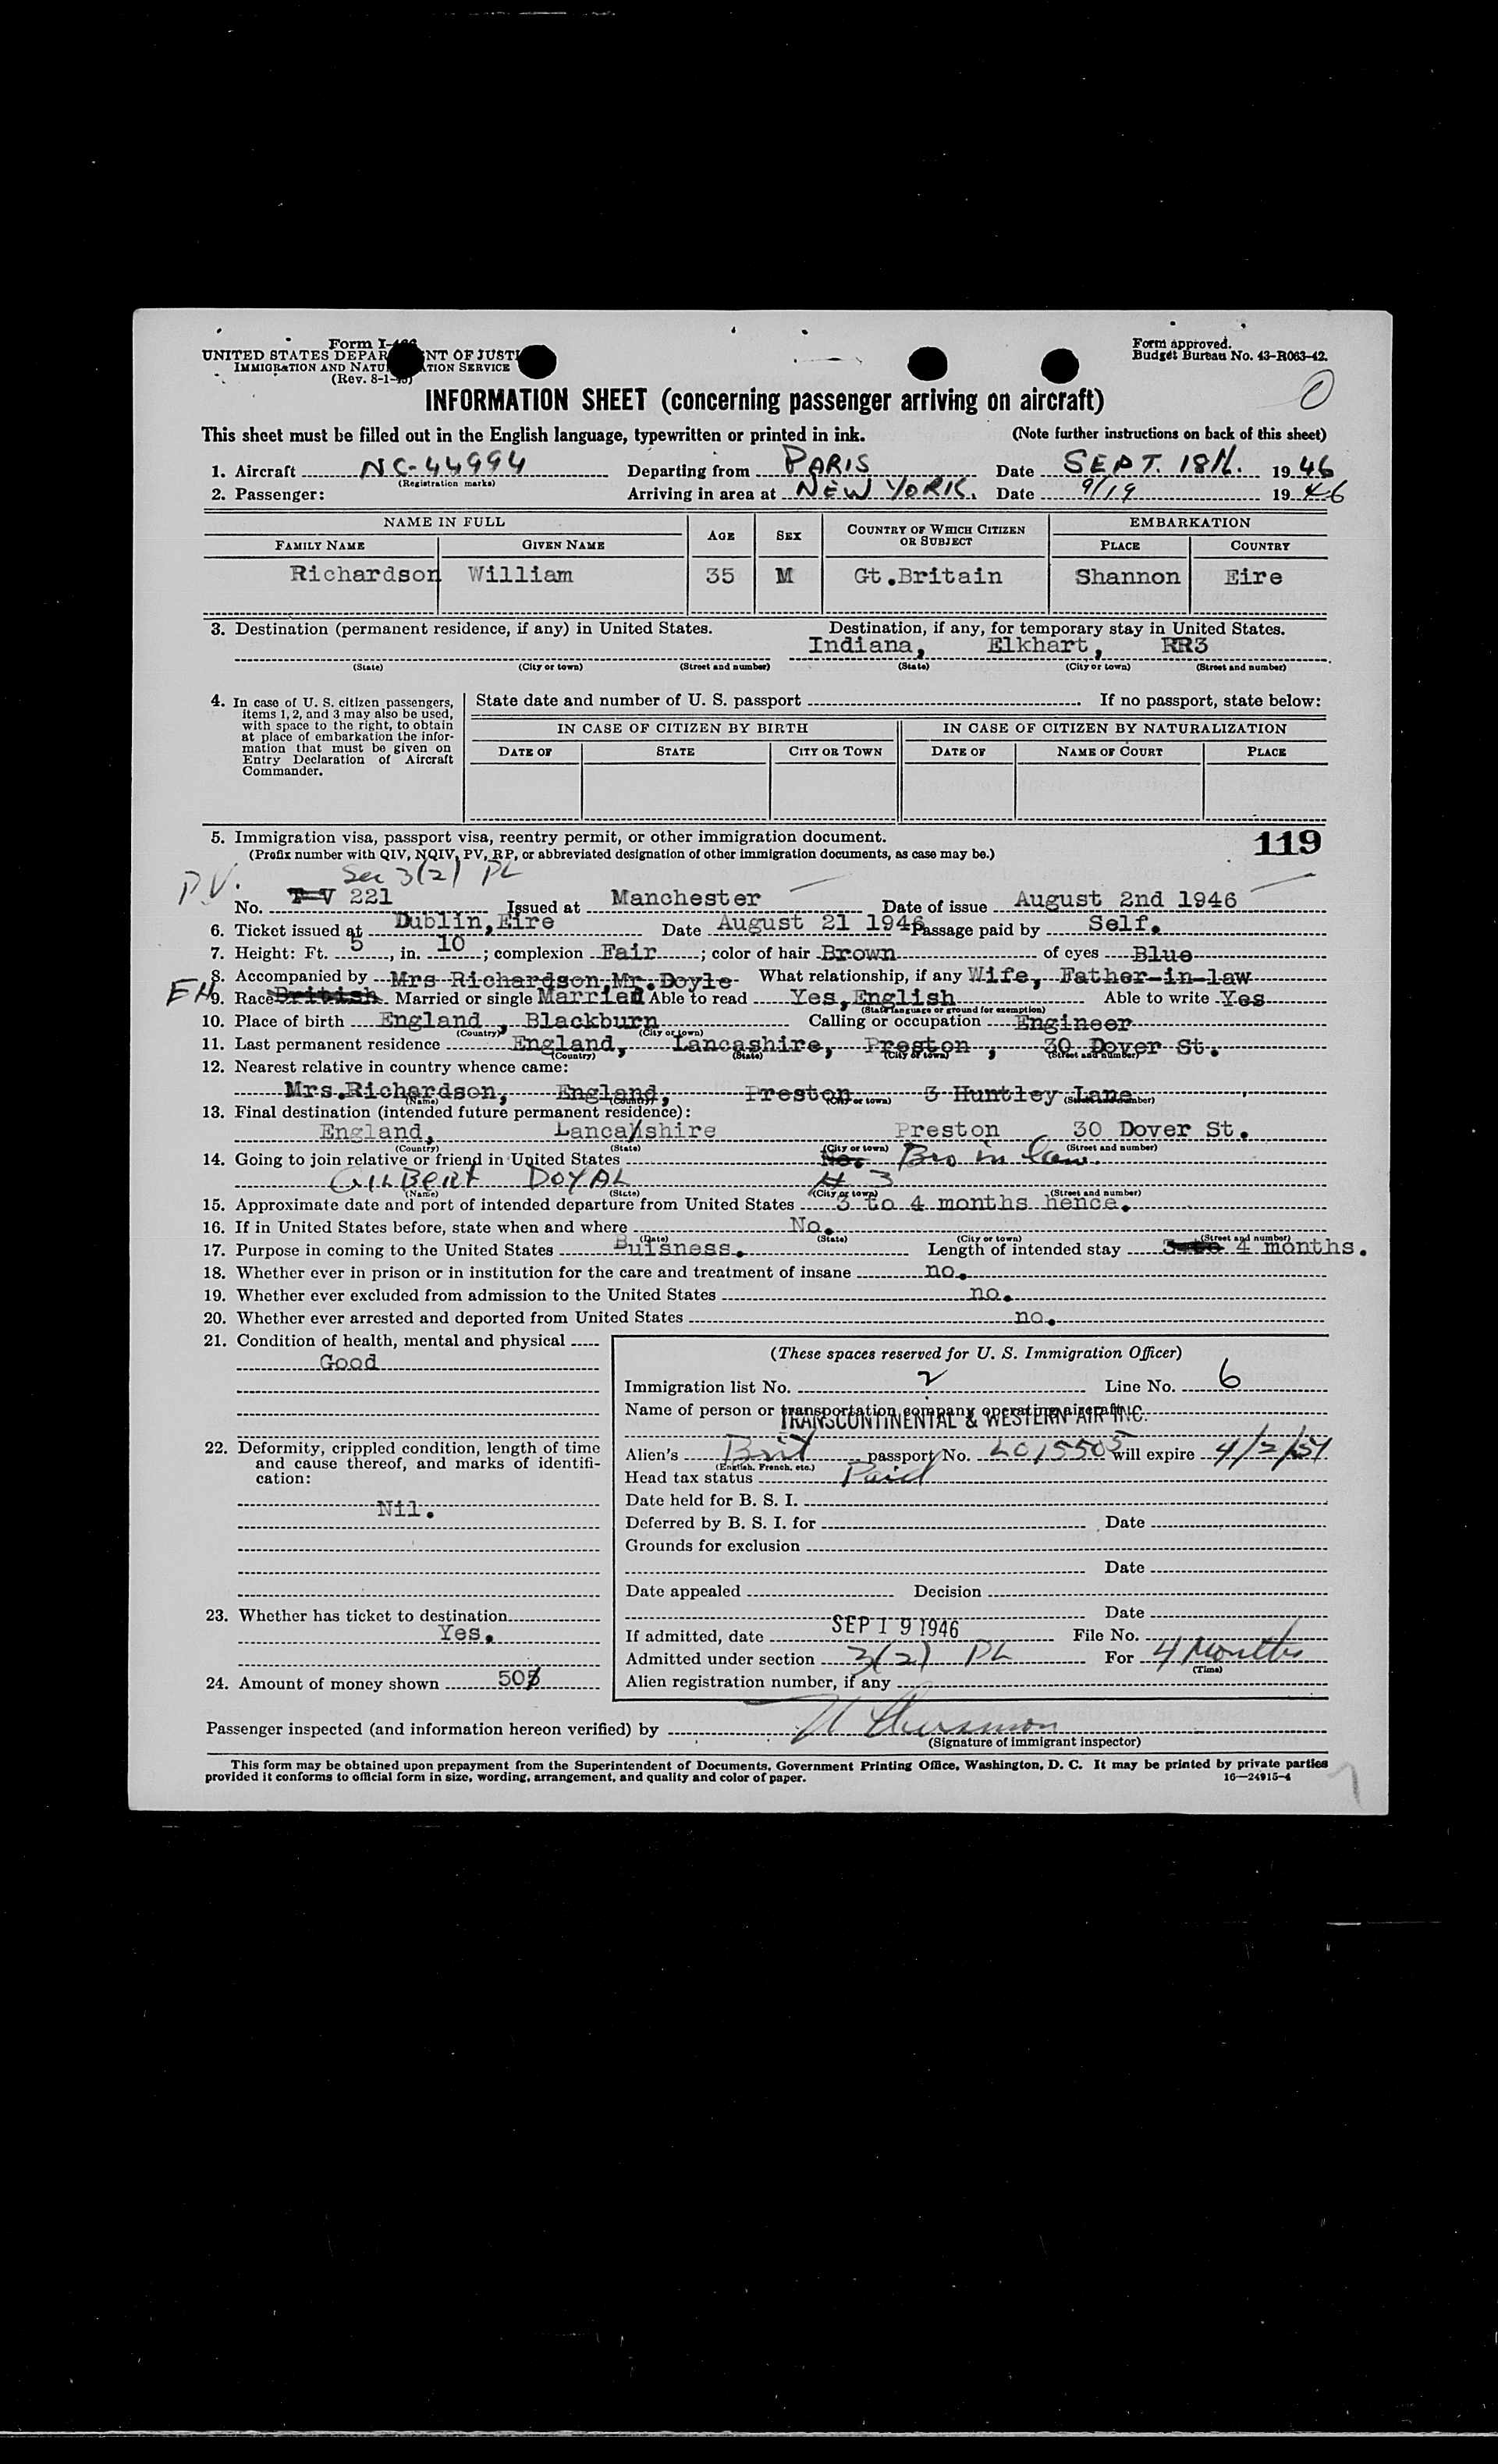 Form I-
UNITED STATES DEPAR NT OF JUSTI
IMMIGRATION AND NATU TION SERVICE
(Rev. 8-1-
Form approved.
Budget Bureau No. 43-R063-42.
INFORMATION SHEET (concerning passenger arriving on aircraft)
This sheet must be filled out in the English language, typewritten or printed in ink. (Note further instructions on back of this sheet)
1. Aircraft NC-44994 Departing from PARIS Date SEPT. 18th. 1946
(Registration marks)
2. Passenger: Arriving in area at NEW YORK. Date 9/19 1946
NAME IN FULL AGE SEX COUNTRY OF WHICH CITIZEN OR SUBJECT EMBARKATION
FAMILY NAME GIVEN NAME PLACE COUNTRY
Richardson William 35 M Gt.Britain Shannon Eire
3. Destination (permanent residence, if any) in United States. Destination, if any, for temporary stay in United States.
Indiana, Elkhart, RR3
(State) (City or town) (Street and number) (State) (City or town) (Street and number)
4. In case of U. S. citizen passengers, items 1, 2, and 3 may also be used, with space to the right, to obtain at place of embarkation the information that must be given on Entry Declaration of Aircraft Commander.
State date and number of U. S. passport If no passport, state below:
IN CASE OF CITIZEN BY BIRTH IN CASE OF CITIZEN BY NATURALIZATION
DATE OF STATE CITY OR TOWN DATE OF NAME OF COURT PLACE
5. Immigration visa, passport visa, reentry permit, or other immigration document. 119
(Prefix number with QIV, NQIV, PV, RP, or abbreviated designation of other immigration documents, as case may be.)
P.V. Sec 3(2) PL
No. T-V 221 Issued at Manchester Date of issue August 2nd 1946
6. Ticket issued at Dublin,Eire Date August 21 1946 Passage paid by Self.
7. Height: Ft. 5, in. 10; complexion Fair; color of hair Brown of eyes Blue
8. Accompanied by Mrs Richardson,Mr.Doyle What relationship, if any Wife, Father-in-law
9. Race British Married or single Married Able to read Yes,English Able to write Yes
(State language or ground for exemption)
10. Place of birth England, Blackburn Calling or occupation Engineer
(Country) (City or town)
11. Last permanent residence England, Lancashire, Preston, 30 Dover St.
(Country) (State) (City or town) (Street and number)
12. Nearest relative in country whence came:
Mrs.Richardson, England, Preston 3 Huntley Lane
(Name) (Country) (City or town) (Street and number)
13. Final destination (intended future permanent residence):
England, Lancashire Preston 30 Dover St.
(Country) (State) (City or town) (Street and number)
14. Going to join relative or friend in United States No. Bro in law.
GILBERT DOYAL # 3
(Name) (State) (City or town) (Street and number)
15. Approximate date and port of intended departure from United States 3 to 4 months hence.
16. If in United States before, state when and where No.
(Date) (State) (City or town) (Street and number)
17. Purpose in coming to the United States Buisness. Length of intended stay 4 months.
18. Whether ever in prison or in institution for the care and treatment of insane no.
19. Whether ever excluded from admission to the United States no.
20. Whether ever arrested and deported from United States no.
21. Condition of health, mental and physical
Good
22. Deformity, crippled condition, length of time and cause thereof, and marks of identification:
Nil.
23. Whether has ticket to destination
Yes.
24. Amount of money shown 50$
(These spaces reserved for U. S. Immigration Officer)
Immigration list No. 2 Line No. 6
Name of person or transportation company operating aircraft
TRANSCONTINENTAL & WESTERN AIR INC.
Alien's Brit passport No. will expire
(English, French, etc.)
Head tax status Paid
Date held for B. S. I.
Deferred by B. S. I. for Date
Grounds for exclusion
Date
Date appealed Decision
Date
If admitted, date SEP 19 1946 File No.
Admitted under section 3(2) PL For 4 Months
(Time)
Alien registration number, if any
Passenger inspected (and information hereon verified) by
(Signature of immigrant inspector)
This form may be obtained upon prepayment from the Superintendent of Documents, Government Printing Office, Washington, D. C. It may be printed by private parties
provided it conforms to official form in size, wording, arrangement, and quality and color of paper. 16—24915-4